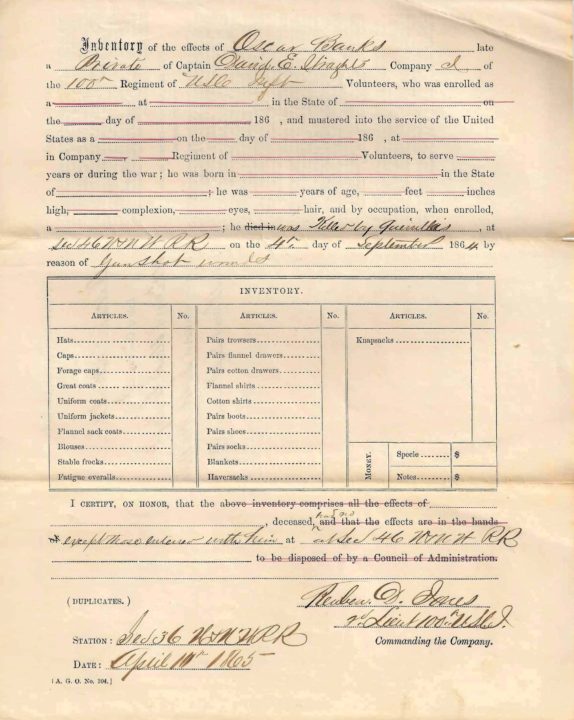 Inventory of the effects of Oscar Banks late
a Private of Captain David E. Company I of
the 100th Regiment of USC Inft Volunteers, who was enrolled as
a at in the State of on
the day of 186 , and mustered into the service of the United
States as a on the day of 186 , at
in Company Regiment of Volunteers, to serve
years or during the war; he was born in in the State
of ; he was years of age, feet inches
high, complexion, eyes, hair, and by occupation, when enrolled,
a ; he died in was Killed by Guerrillas, at
Sec 46 N&N W RR on the 4th day of September 1864, by
reason of Gun Shot wounds
INVENTORY.
ARTICLES. No. ARTICLES. No. ARTICLES. No.
Hats Pairs trowsers Knapsacks
Caps Pairs flannel drawers
Forage caps Pairs cotton drawers
Great coats Flannel shirts
Uniform coats Cotton shirts
Uniform jackets Pairs boots
Flannel sack coats Pairs shoes
Blouses Pairs socks
Stable frocks Blankets
Fatigue overalls Haversacks
MONEY.
Specie $
Notes $
I CERTIFY, ON HONOR, that the above inventory comprises all the effects of
, deceased, had no and that the effects are in the hands
of except those entered with him at at Sec 46 N&N W RR
to be disposed of by a Council of Administration.
(DUPLICATES.)
Reuben D. Jones
2d Lieut 100th USCI
Commanding the Company.
STATION: Sec 36 N&N W RR
DATE: April 10th 1865
[A. G. O. No. 104.]